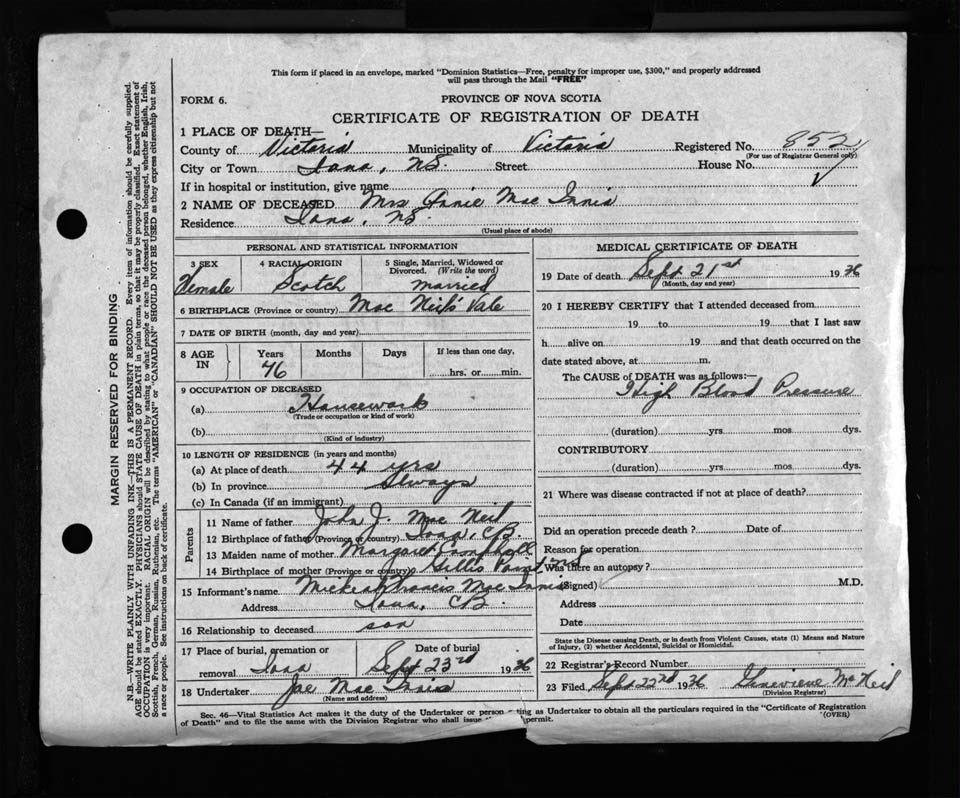 This form if placed in an envelope, marked "Dominion Statistics—Free, penalty for improper use, $300," and properly addressed
will pass through the Mail "FREE"
FORM 6.
PROVINCE OF NOVA SCOTIA
CERTIFICATE OF REGISTRATION OF DEATH
1 PLACE OF DEATH—
County of Victoria Municipality of Victoria Registered No. 852
(For use of Registrar General only)
City or Town Iona, NS. Street House No.
If in hospital or institution, give name
2 NAME OF DECEASED Mrs Annie Mac Innis
Residence Iona, NS.
(Usual place of abode)
PERSONAL AND STATISTICAL INFORMATION
3 SEX 4 RACIAL ORIGIN 5 Single, Married, Widowed or
Divorced. (Write the word)
Female Scotch married
6 BIRTHPLACE (Province or country) Mac Neil's Vale
7 DATE OF BIRTH (month, day and year)
8 AGE IN Years Months Days If less than one day,
46 hrs. or min.
9 OCCUPATION OF DECEASED
(a) Housework
(Trade or occupation or kind of work)
(b)
(Kind of industry)
10 LENGTH OF RESIDENCE (in years and months)
(a) At place of death 44 yrs
(b) In province Always
(c) In Canada (if an immigrant)
Parents
11 Name of father John J. Mac Neil
12 Birthplace of father (Province or country) Iona, CB
13 Maiden name of mother Margaret Campbell
14 Birthplace of mother (Province or country) Gillis Point
15 Informant's name Michael Francis Mac Innis
Address Iona, CB.
16 Relationship to deceased son
17 Place of burial, cremation or Date of burial
removal Iona Sept 23rd 1936
18 Undertaker Joe Mac Innis
(Name and address)
MEDICAL CERTIFICATE OF DEATH
19 Date of death Sept 21st 1936
(Month, day and year)
20 I HEREBY CERTIFY that I attended deceased from
19 to 19 that I last saw
h alive on 19 and that death occurred on the
date stated above, at m.
The CAUSE of DEATH was as follows:—
High Blood Pressure
(duration) yrs. mos. dys.
CONTRIBUTORY
(duration) yrs. mos. dys.
21 Where was disease contracted if not at place of death?
Did an operation precede death? Date of
Reason for operation
Was there an autopsy?
(Signed) M.D.
Address
Date
State the Disease causing Death, or in death from Violent Causes, state (1) Means and Nature
of Injury, (2) whether Accidental, Suicidal or Homicidal.
22 Registrar's Record Number
23 Filed Sept 22nd 1936 Genevieve McNeil
(Division Registrar)
Sec. 46—Vital Statistics Act makes it the duty of Undertaker or person acting as Undertaker to obtain all the particulars required in the "Certificate of Registration
of Death" and to file the same with the Division Registrar who shall issue permit. (OVER)
MARGIN RESERVED FOR BINDING
N.B.—WRITE PLAINLY WITH UNFADING INK—THIS IS A PERMANENT RECORD. Every item of information should be carefully supplied.
AGE should be stated EXACTLY. PHYSICIANS should STATE CAUSE OF DEATH in plain terms, so that it may be properly classified. Exact statement of
OCCUPATION is very important. RACIAL ORIGIN will be described by stating to what people or race the deceased person belonged, whether English, Irish,
Scottish, French, German, Russian, Ruthenian, etc. The terms "AMERICAN" or "CANADIAN" SHOULD NOT BE USED as they express citizenship but not
a race or people. See instructions on back of certificate.